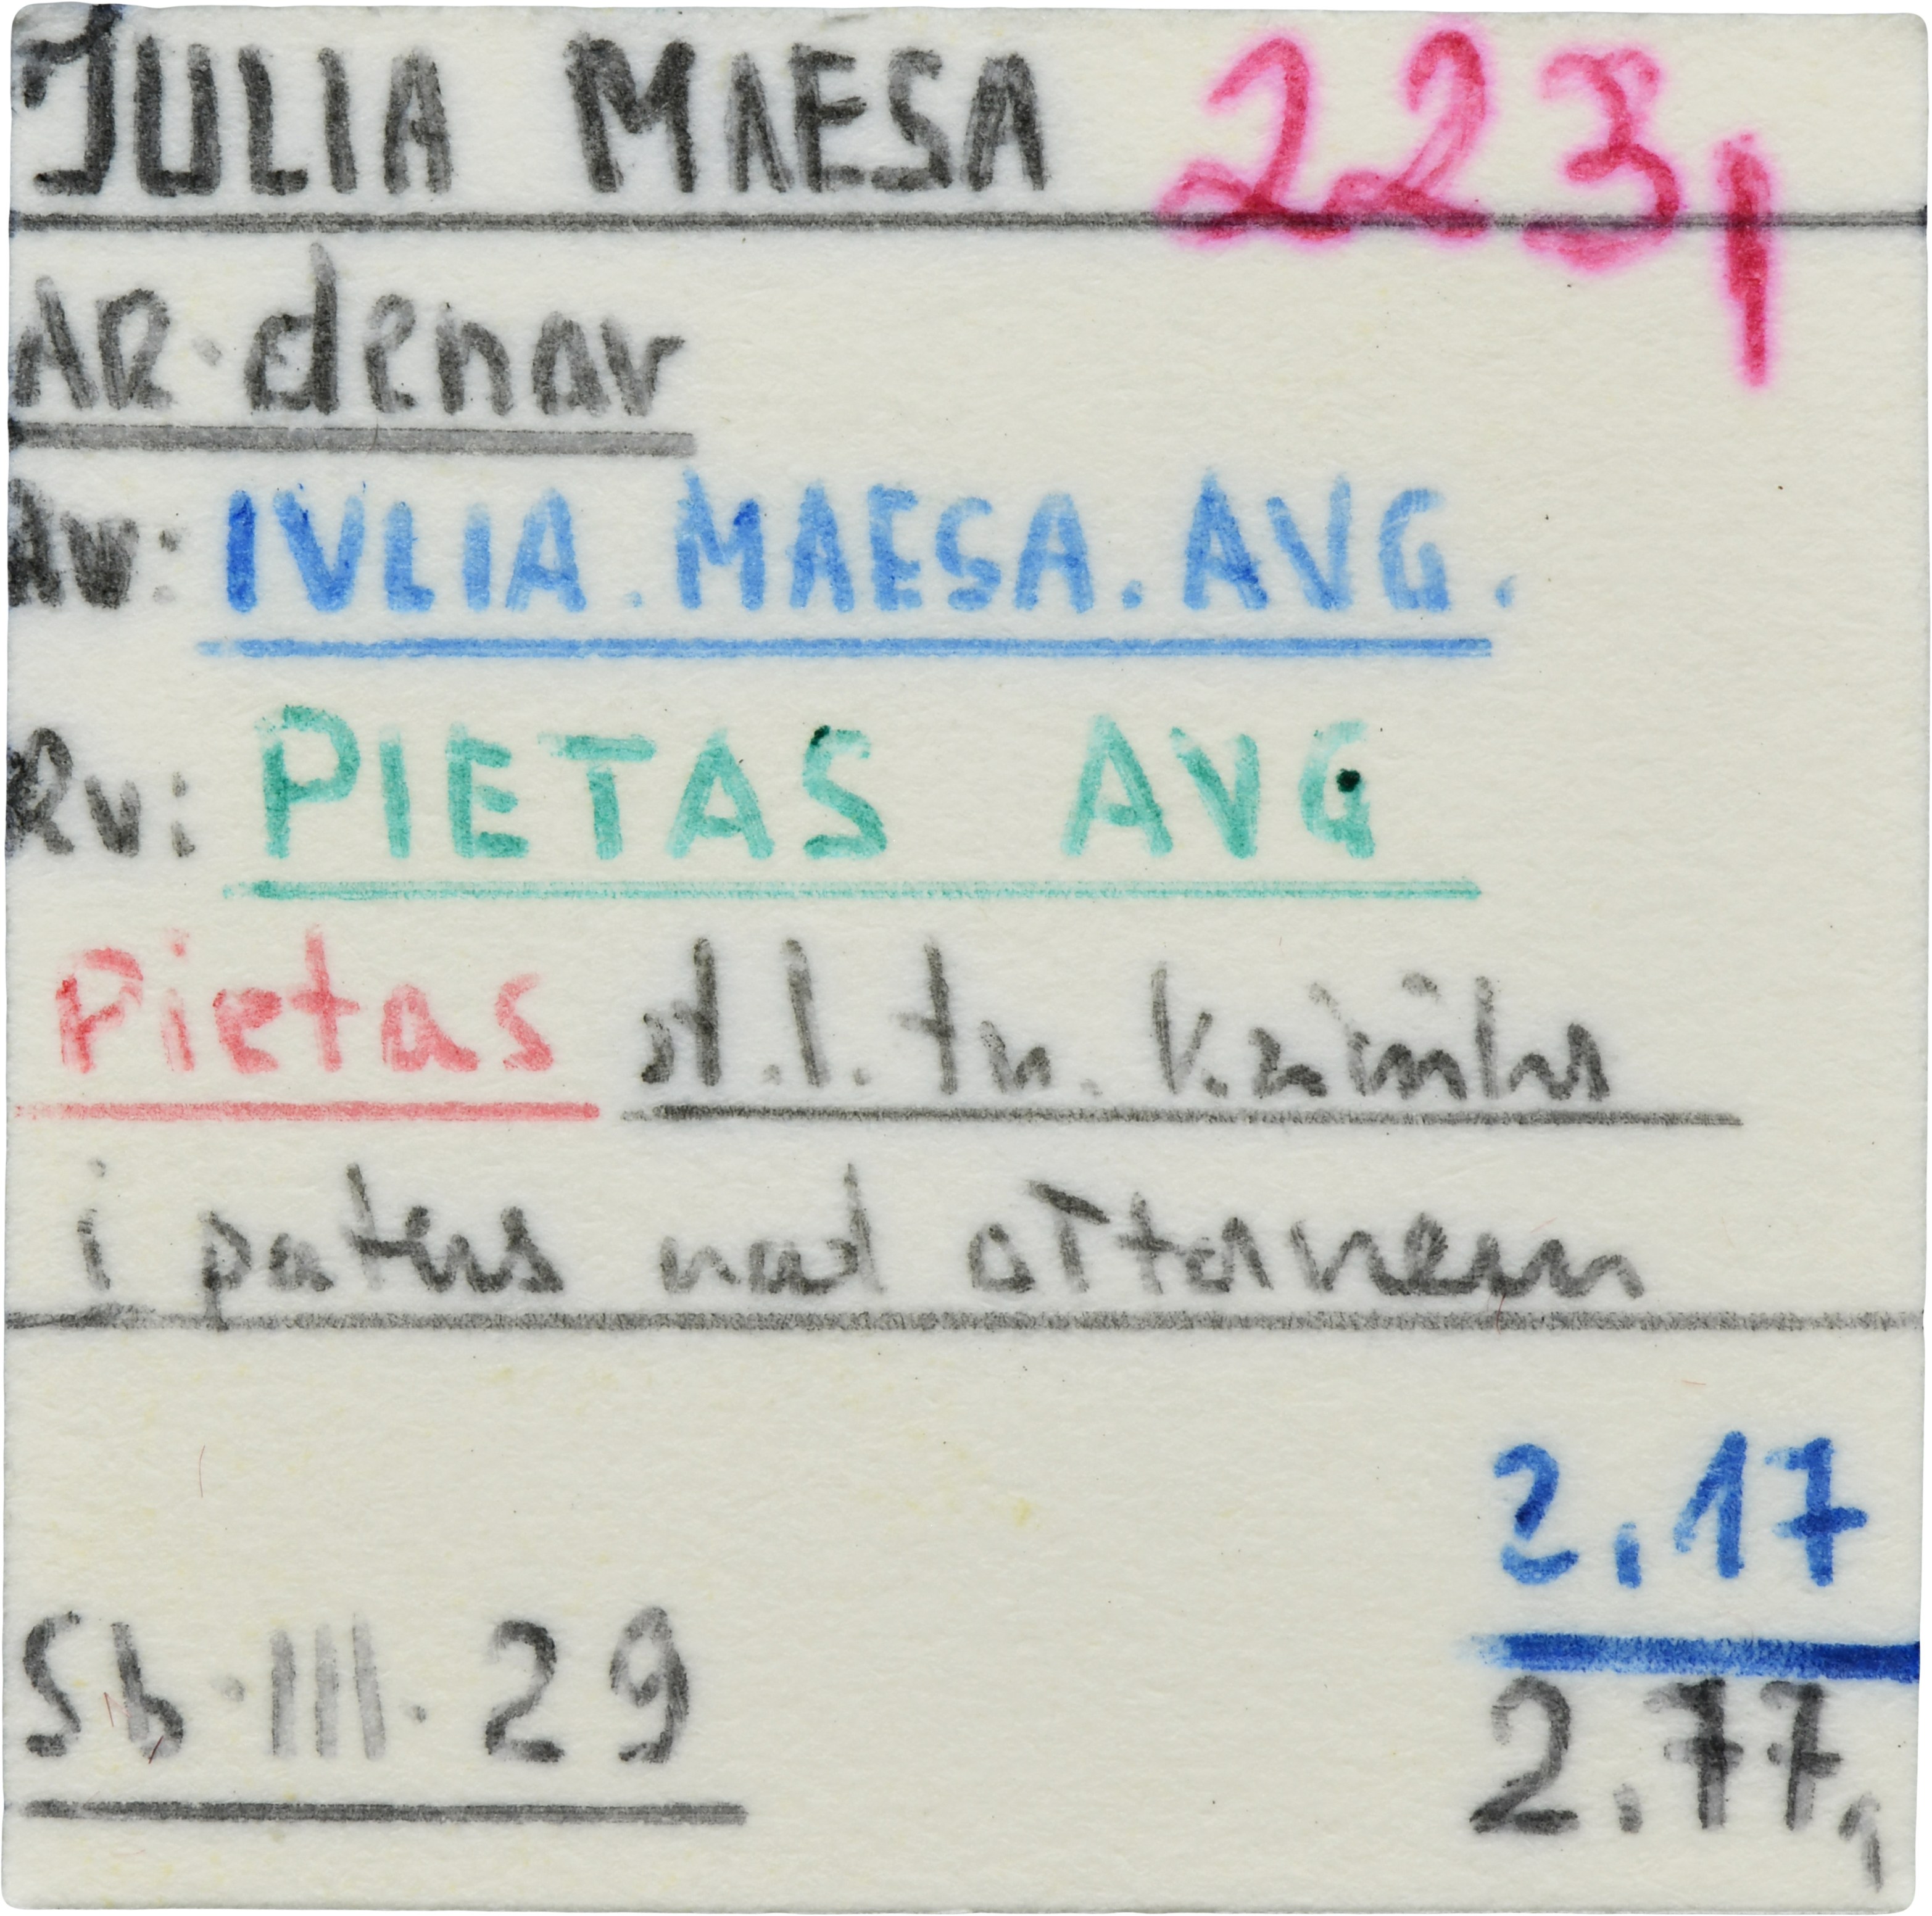 JULIA MAESA 223,
AR·denar
Av: IVLIA.MAESA.AVG.
Rv: PIETAS AVG
Pietas st.l. tu.
i pateru nad oltarem
2,17
Sb·III·29 2.77g